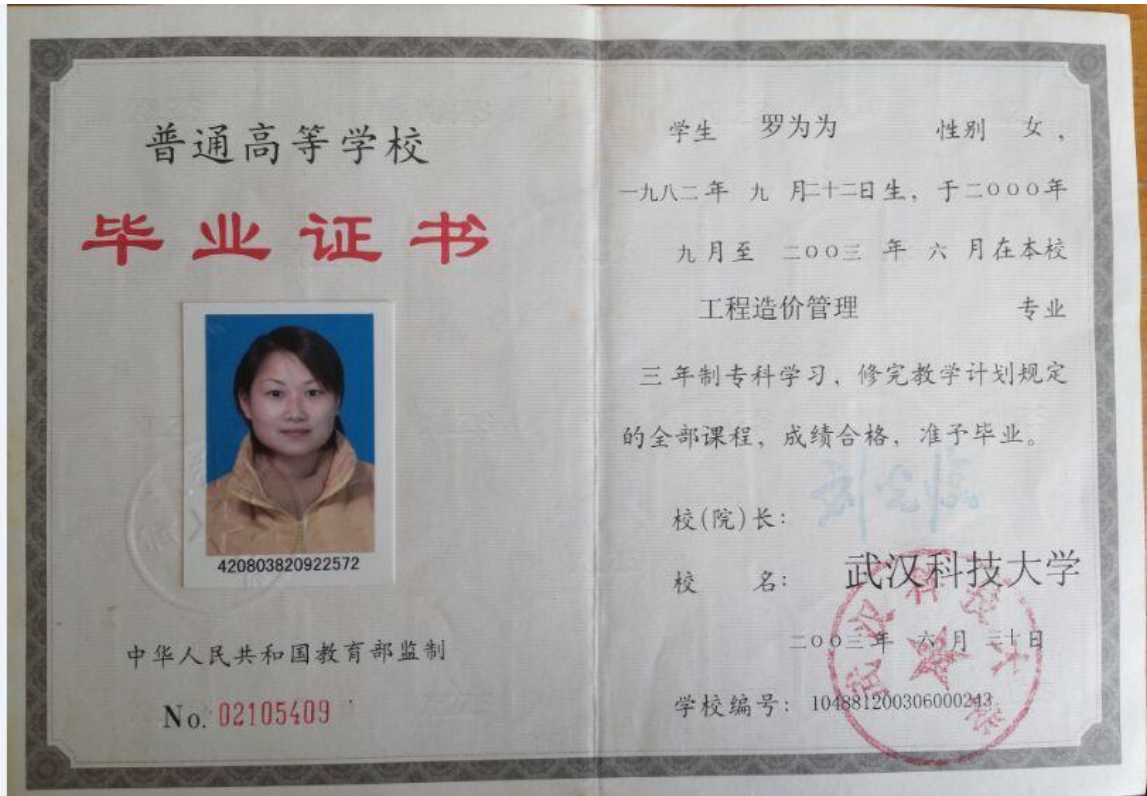 普通高等学校
毕业证书
420803820922572
中华人民共和国教育部监制
No. 02105409
学生 罗为为 性别 女,
一九八二年 九 月二十二日生, 于二〇〇〇年
九月至 二〇〇三 年 六 月在本校
工程造价管理 专业
三 年制专科学习, 修完教学计划规定
的全部课程, 成绩合格, 准予毕业。
校(院)长:
校 名: 武汉科技大学
二〇〇三年 六月 三十日
学校编号: 104881200306000243
武汉科技大学